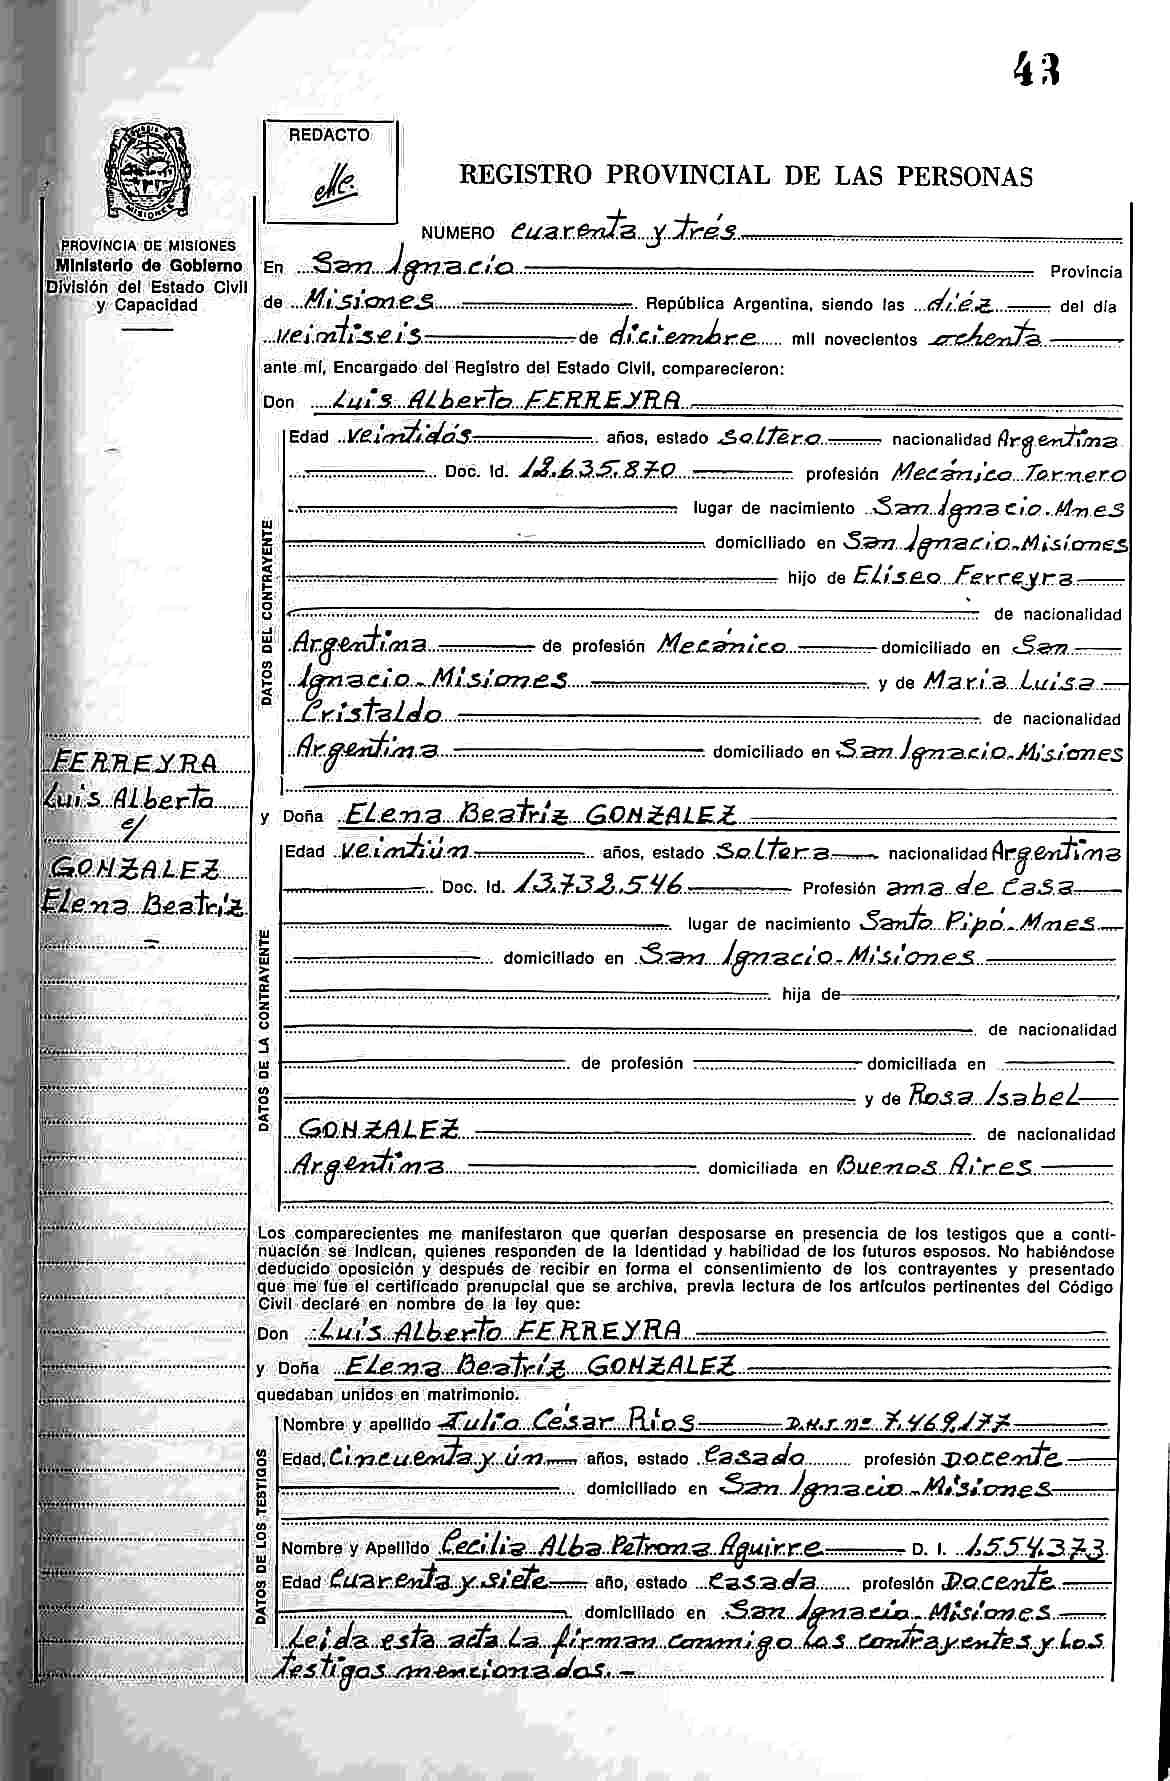 43
REDACTO
REGISTRO PROVINCIAL DE LAS PERSONAS
MISIONES
PROVINCIA DE MISIONES
Ministerio de Gobierno
División del Estado Civil
y Capacidad
NUMERO cuarenta y trés
En San Ignacio Provincia
de Misiones República Argentina, siendo las diéz del día
veintiseis de diciembre mil novecientos ochenta
ante mí, Encargado del Registro del Estado Civil, comparecieron:
Don Luis Alberto FERREYRA
DATOS DEL CONTRAYENTE
Edad veintidós años, estado soltero nacionalidad Argentina
Doc. Id. profesión Mecánico Tornero
lugar de nacimiento San Ignacio. Mnes
domiciliado en San Ignacio-Misiones
hijo de Eliseo Ferreyra
de nacionalidad
Argentina de profesión Mecánico domiciliado en San
Ignacio-Misiones y de Maria Luisa
Cristaldo de nacionalidad
Argentina domiciliado en San Ignacio-Misiones
FERREYRA
Luis Alberto
c/
GONZALEZ
Elena Beatriz
y Doña Elena Beatriz GONZALEZ
DATOS DE LA CONTRAYENTE
Edad veintiún años, estado Soltera nacionalidad Argentina
Doc. Id. 13.732.546 Profesión ama de Casa
lugar de nacimiento Santo Pipó-Mnes
domiciliado en San Ignacio-Misiones
hija de
de nacionalidad
de profesión domiciliada en
y de Rosa Isabel
GONZALEZ de nacionalidad
Argentina domiciliada en Buenos Aires
Los comparecientes me manifestaron que querían desposarse en presencia de los testigos que a conti-
nuación se indican, quienes responden de la identidad y habilidad de los futuros esposos. No habiéndose
deducido oposición y después de recibir en forma el consentimiento de los contrayentes y presentado
que me fue el certificado prenupcial que se archiva, previa lectura de los artículos pertinentes del Código
Civil declaré en nombre de la ley que:
Don Luis Alberto FERREYRA
y Doña Elena Beatriz GONZALEZ
quedaban unidos en matrimonio.
DATOS DE LOS TESTIGOS
Nombre y apellido Julio César Rios D.N.I. nº 7.469.177
Edad Cincuenta y ún años, estado Casado profesión Docente
domiciliado en San Ignacio-Misiones
Nombre y Apellido Cecilia Alba Petrona Aguirre D. I. 1.554.373
Edad Cuarenta y siete año, estado Casada profesión Docente
domiciliado en San Ignacio-Misiones
Leida esta acta la firman conmigo los contrayentes y los
testigos mencionados.-